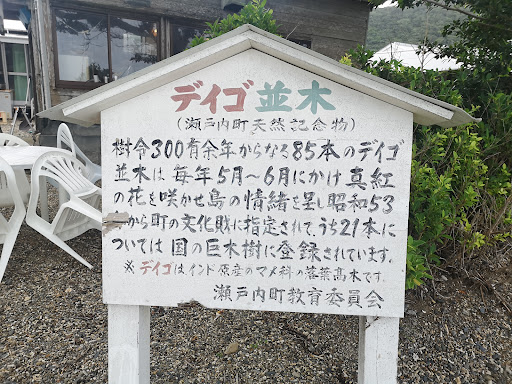 デイゴ並木
(瀬戸内町天然記念物)
樹令300有余年からなる85本のデイゴ
並木は毎年5月~6月にかけ真紅
の花を咲かせ島の情緒を呈し昭和53
から町の文化財に指定されて、うち21本に
ついては国の巨木樹に登録されています。
※デイゴはインド原産のマメ科の落葉高木です。
瀬戸内町教育委員会